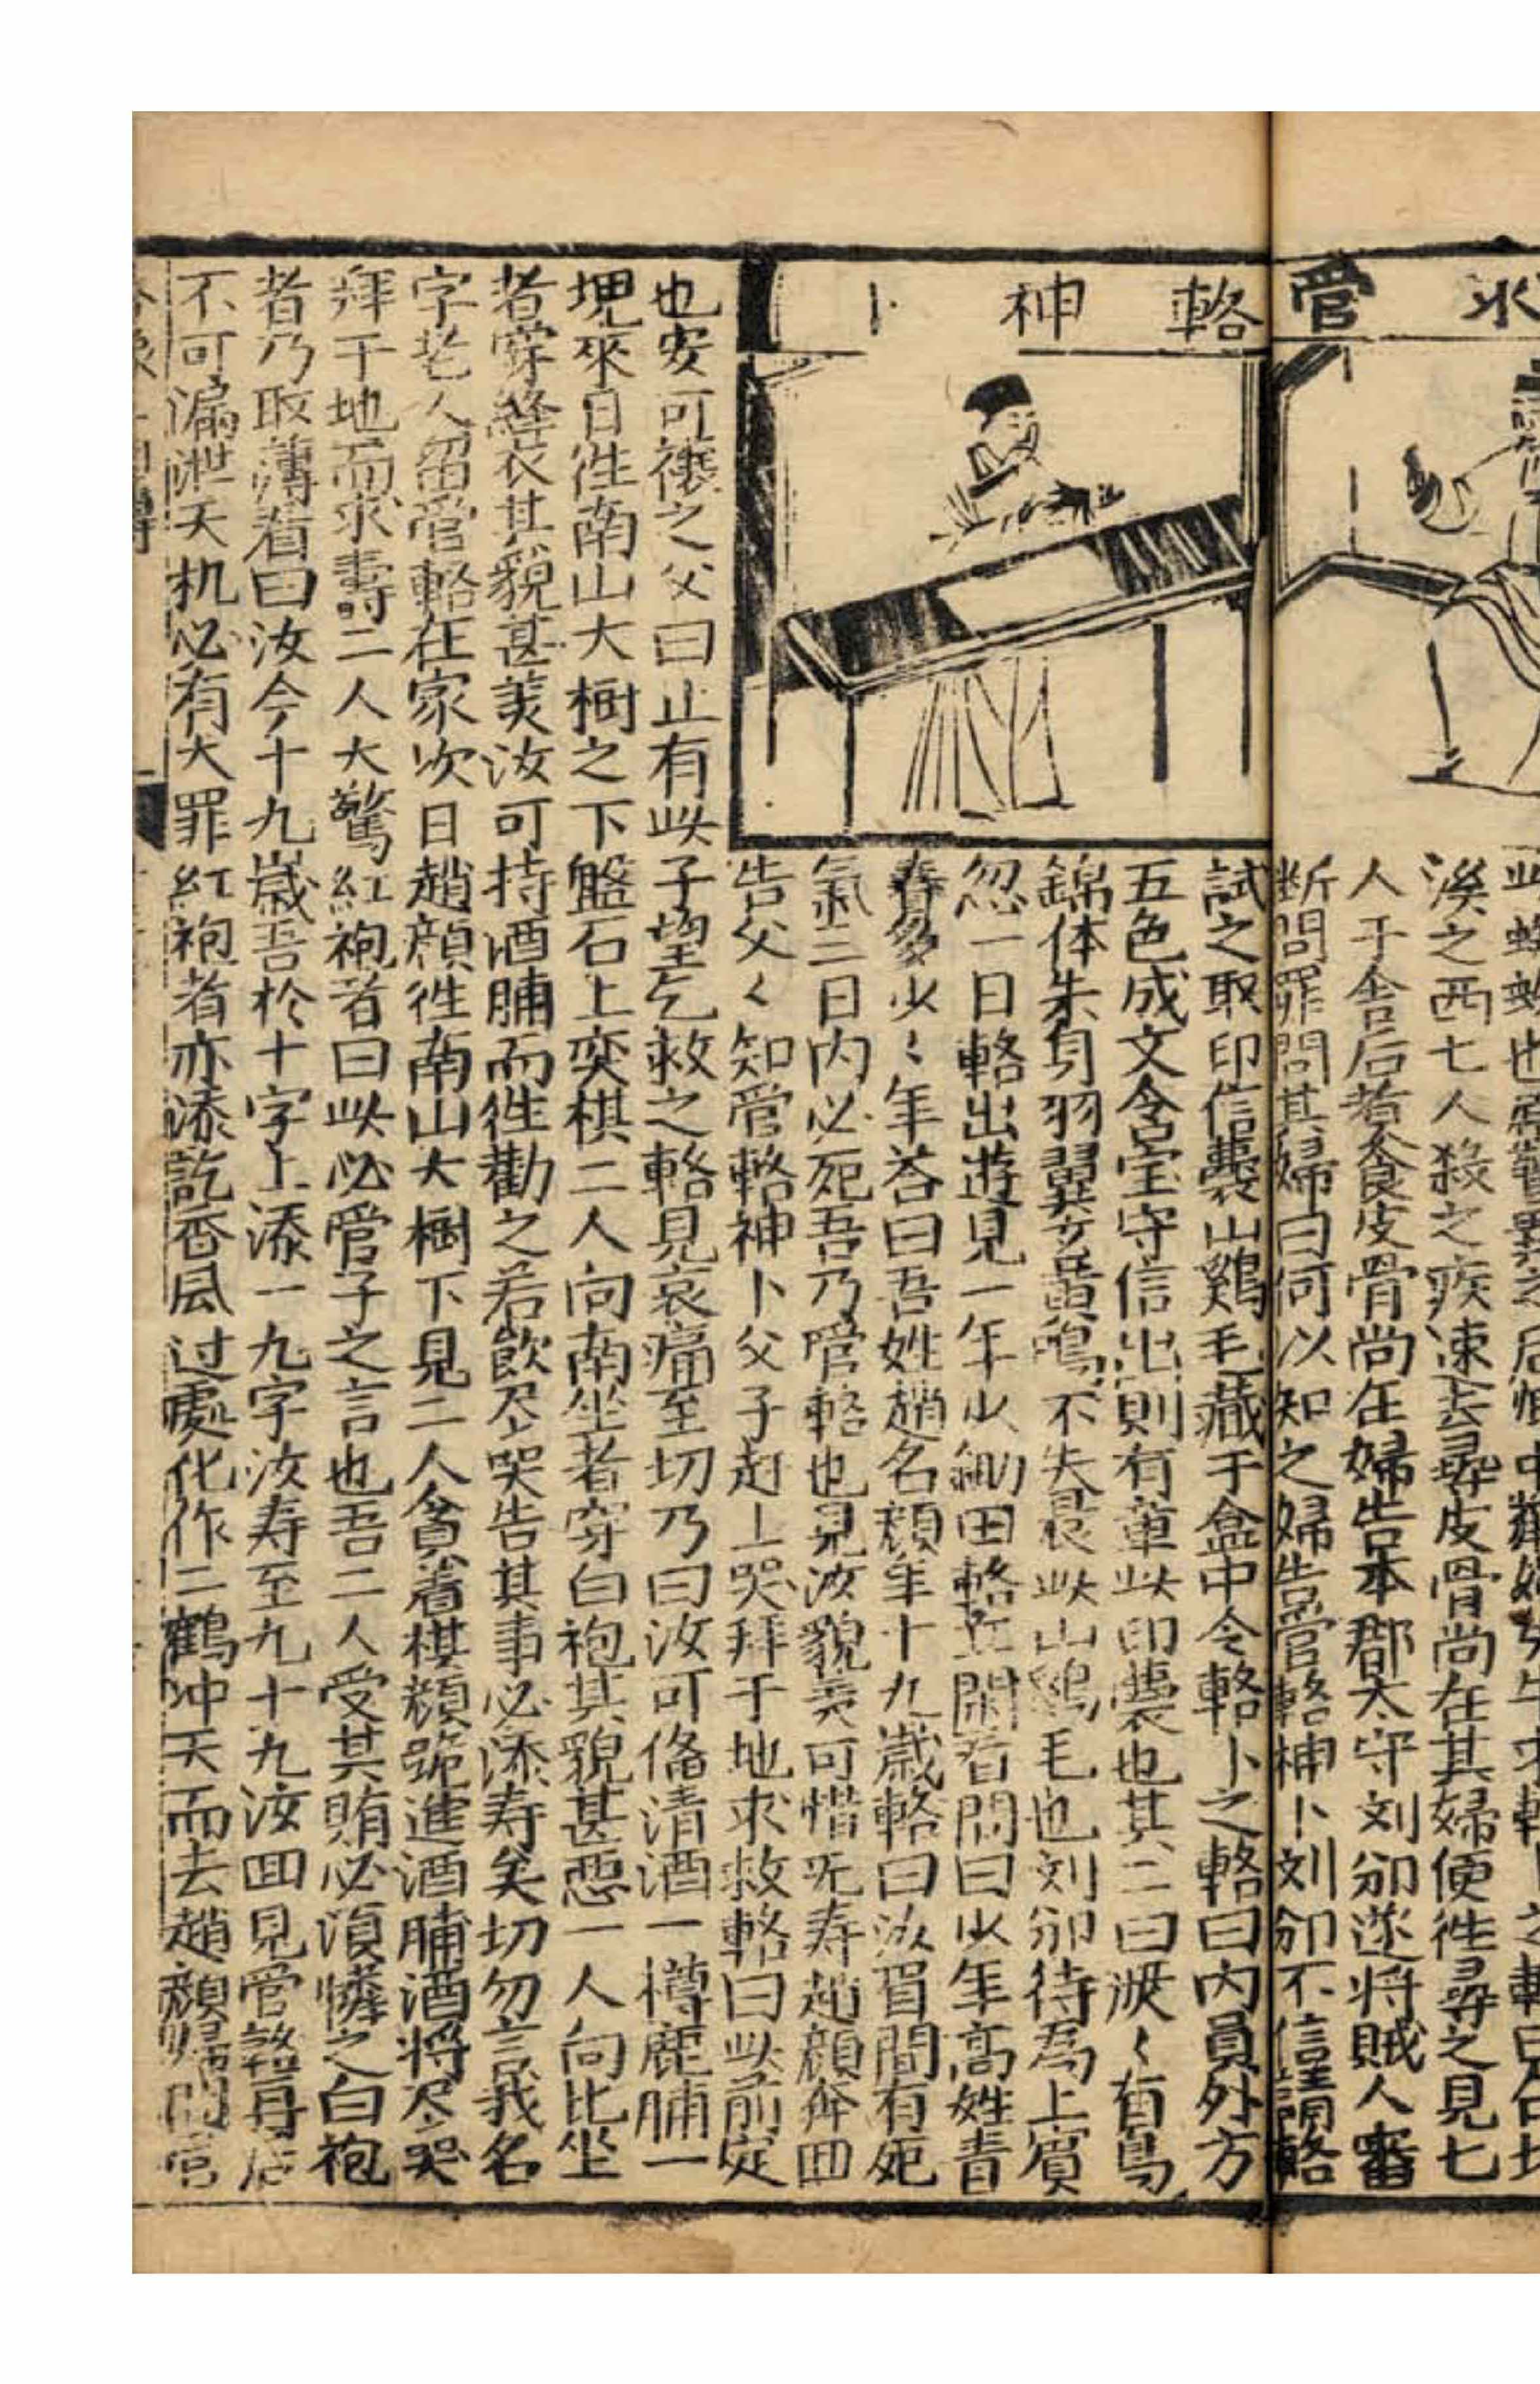 求管輅神卜
涘之西七人殺之疾速去尋皮骨尚在其婦便徃尋之見七
人于舎后煮食皮骨尚在婦告本郡太守刘邠遂将賊人審
断問罪問其婦曰何以知之婦告管輅神卜刘邠不信請輅
試之取印信囊山鷄毛藏于盒中令輅卜之輅曰内員外方
五色成文含宝守信出則有章此印囊也其二曰巖〻有鳥
錦体朱身羽翼玄黄鳴不失晨此山鷄毛也刘邠待為上賔
忽一日輅出遊見一年少鋤田輅立開看問曰少年高姓青
春多少〻年荅曰吾姓趙名顔年十九歲輅曰汝眉間有死
氣三日内必死吾乃管輅也見汝貌美可惜无寿趙顔奔囬
告父〻知管輅神卜父子赶上哭拜于地求救輅曰此前定
也安可禳之父曰止有此子望乞救之輅見哀痛至切乃曰汝可俻清酒一樽鹿脯一
塊來日徃南山大樹之下盤石上奕棋二人向南坐者穿白袍其貌甚惡一人向北坐
者穿絳衣其貌甚美汝可持酒脯而徃勸之若飲尽哭告其事必添寿矣切勿言我名
字老人留管輅在家次日趙顔徃南山大樹下見二人貪着棋顔跪進酒脯酒将尽哭
拜于地而求壽二人大驚紅袍者曰此必管子之言也吾二人受其賄必湏憐之白袍
者乃取薄看曰汝今十九歲吾於十字上添一九字汝寿至九十九汝囬見管輅再后
不可漏泄天机必有大罪紅袍者亦添訖香風过處化作二鶴冲天而去趙顔歸問管